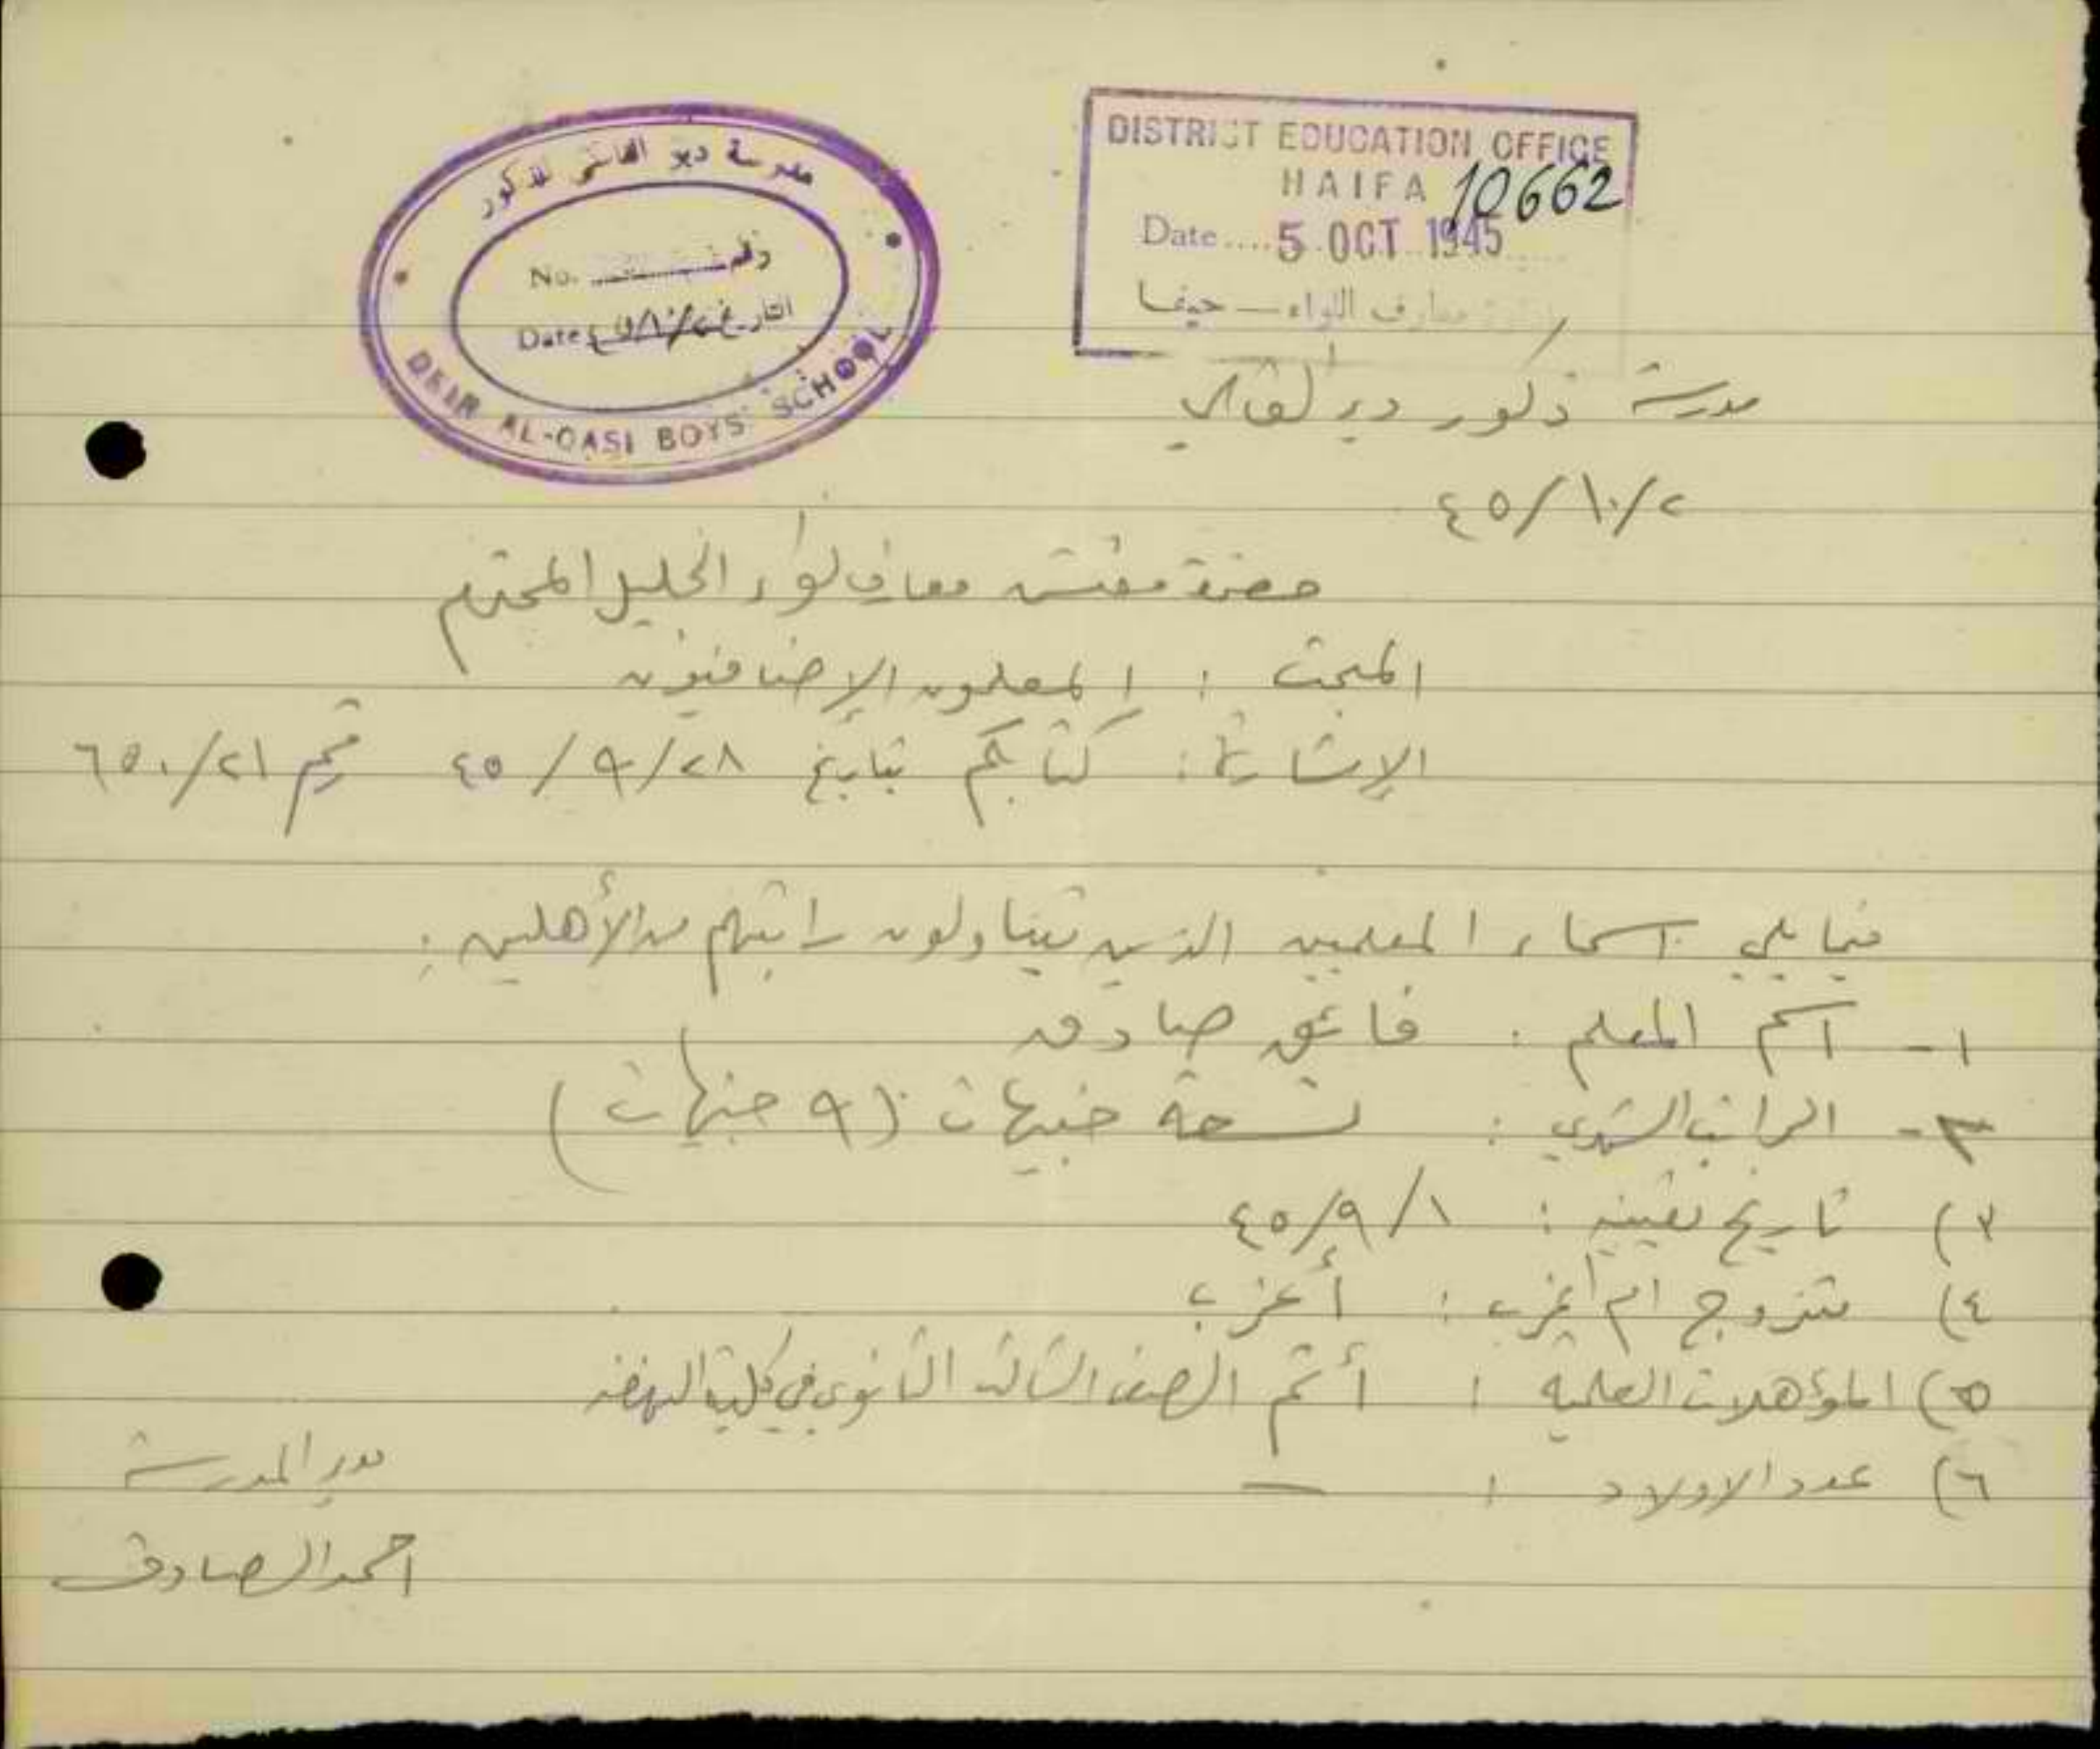 مدرسة دير القاسي للذكور
No. رقم
Date ٤٥/١٠/٢ التاريخ
DEIR AL-QASI BOYS' SCHOOL
DISTRICT EDUCATION OFFICE
HAIFA 10662
Date.... 5 OCT 1945
معارف اللواء — حيفا
مدرسة ذكور دير القاسي
٤٥/١٠/٢
حضرة مفتش معارف لواء الجليل المحترم
المبحث : المعلمون الإضافيون
الإشارة : كتابكم بتاريخ ٤٥/٩/٢٨ رقم ٦٥٠/٢١
فيما يلي اسماء المعلمين الذين يتناولون راتبهم من الأهلين :
١- اسم المعلم : فائق صادق
٢- الراتب الشهري : تسعة جنيهات (٩ جنيهات)
٣) تاريخ تعيينه : ٤٥/٩/١
٤) متزوج ام أعزب : أعزب
٥) المؤهلات العلمية : أتم الصف الثالث الثانوي في كلية النهضة
٦) عدد الاولاد : —
مدير المدرسة
احمد الصادق